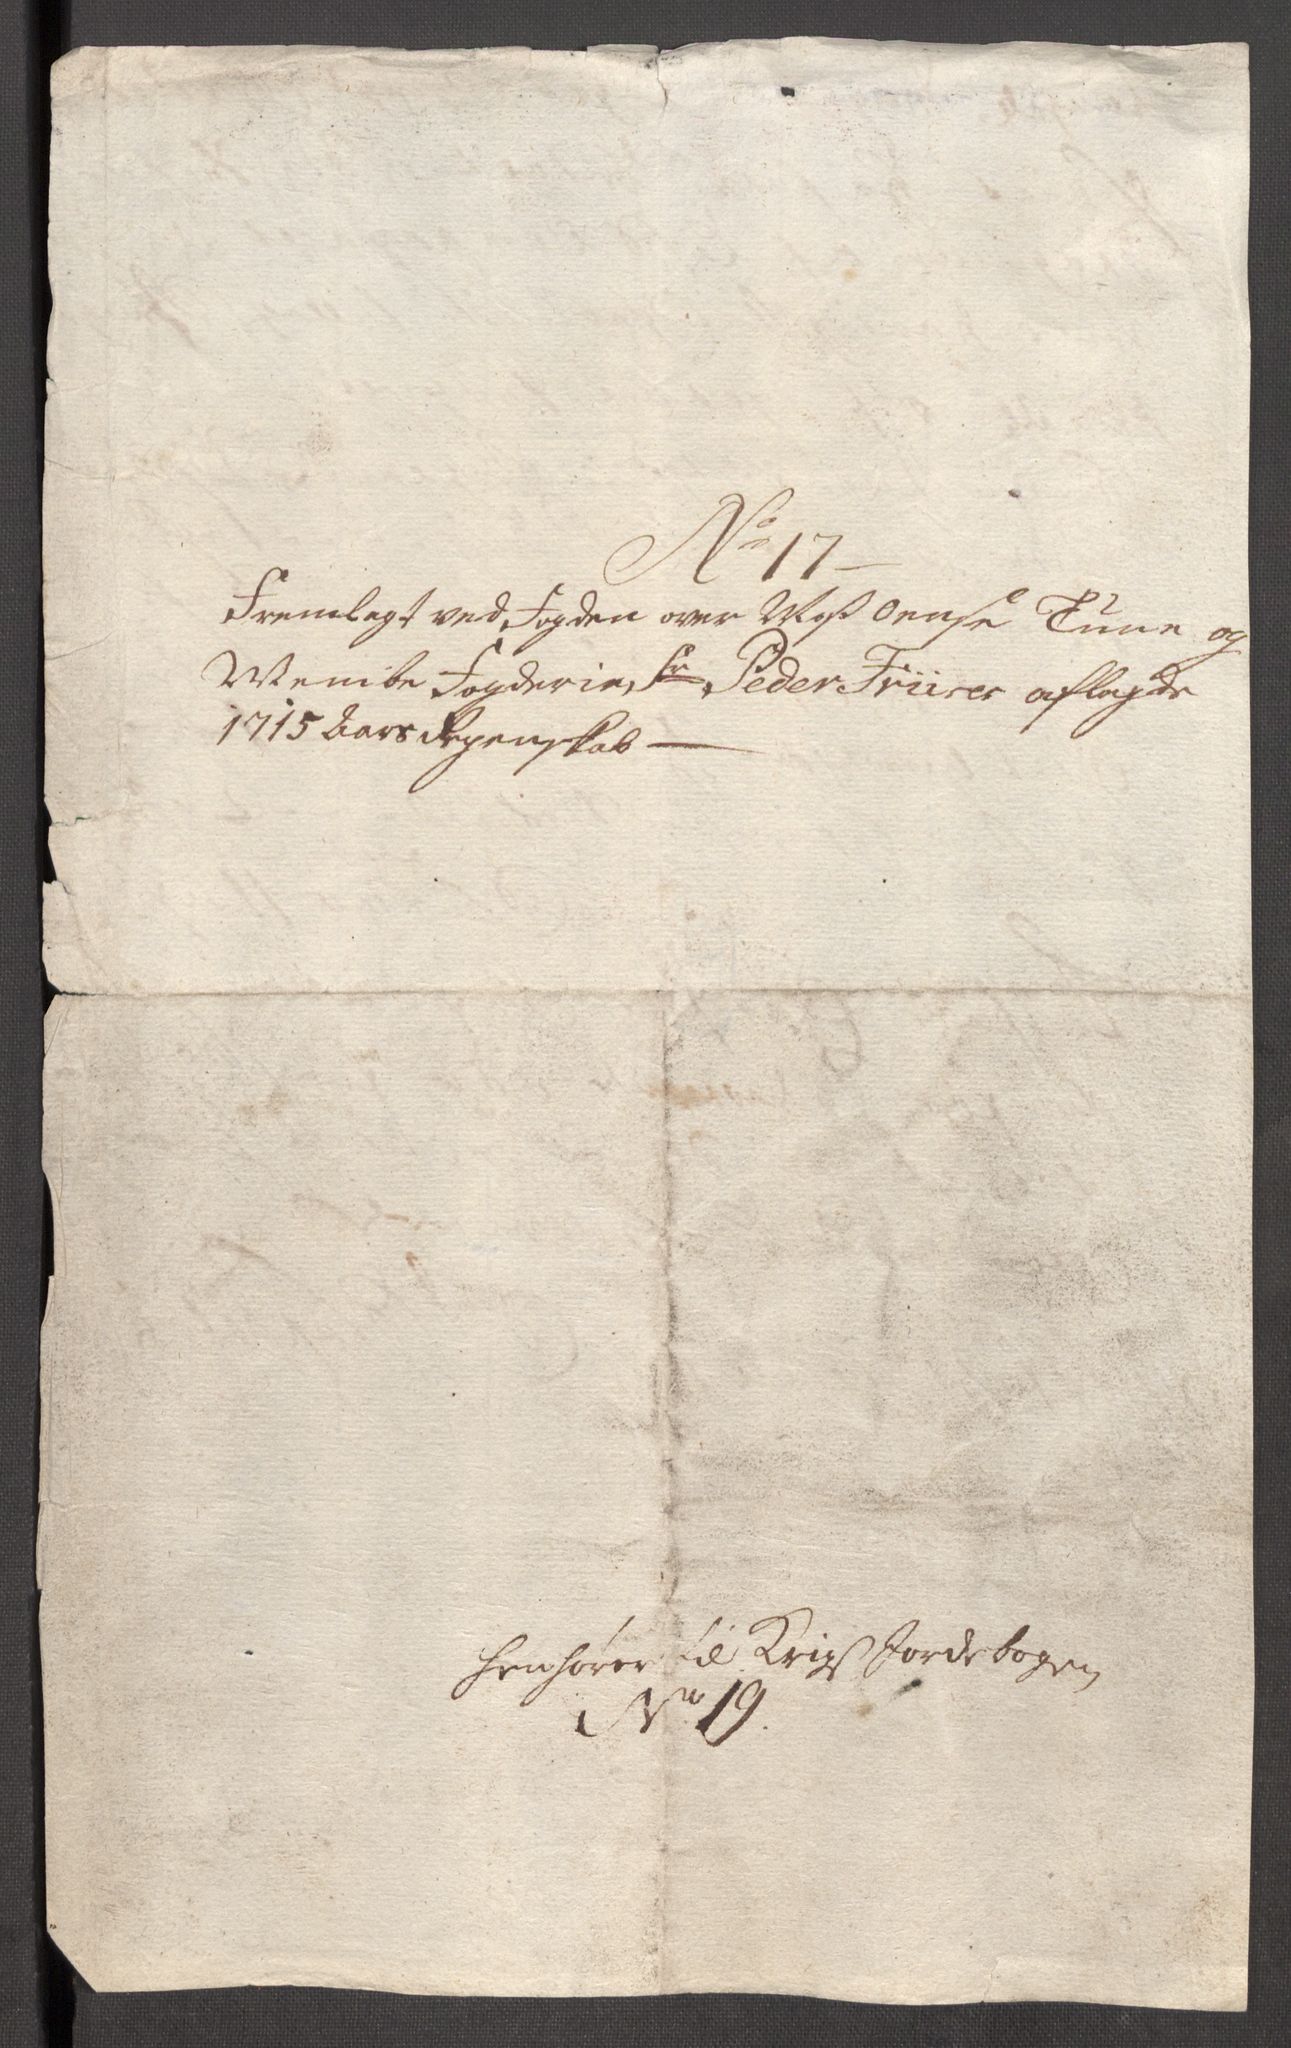 No 17
Fremlagt ved Fogden over Moss Onsøe Tune og
Wembe Fogderie, Sr Peder Friises aflagde
1715 Aars Regenskab
Henhører til Krigs Jordebogen
No 19.